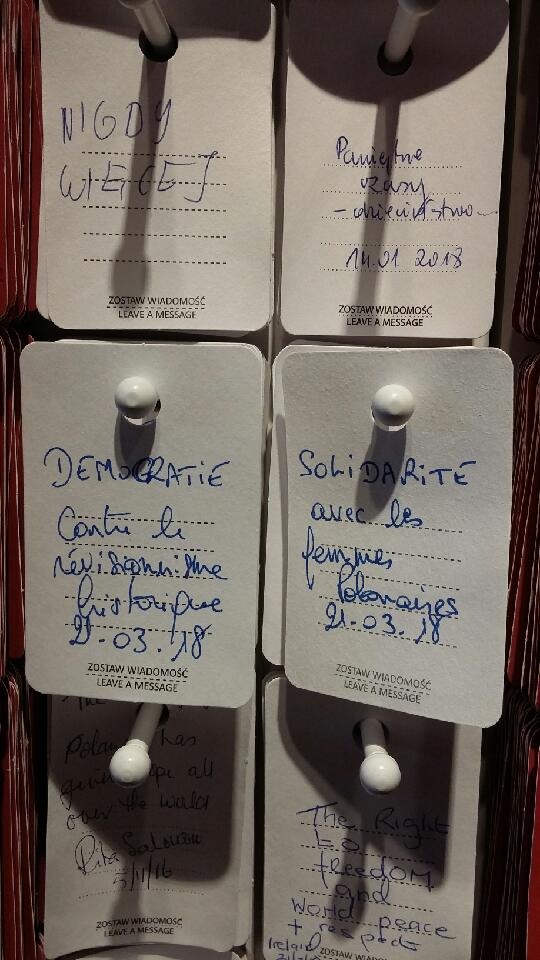 NIGDY
WIĘCEJ
ZOSTAW WIADOMOŚĆ
LEAVE A MESSAGE
Pamiętne
czasy
- dzieciństwo
14.01 2018
ZOSTAW WIADOMOŚĆ
LEAVE A MESSAGE
DEMOCRATIE
Contre le
révisionnisme
historique
21.03.18
ZOSTAW WIADOMOŚĆ
LEAVE A MESSAGE
SOLiDARiTÉ
avec les
femmes
Polonaises
21.03.18
ZOSTAW WIADOMOŚĆ
LEAVE A MESSAGE
The
Poland has
given hope all
over the world
5/11/16
ZOSTAW WIADOMOŚĆ
LEAVE A MESSAGE
The Right
to
freedom
and
World peace
+ respect
Ireland
ZOSTAW WIADOMOŚĆ